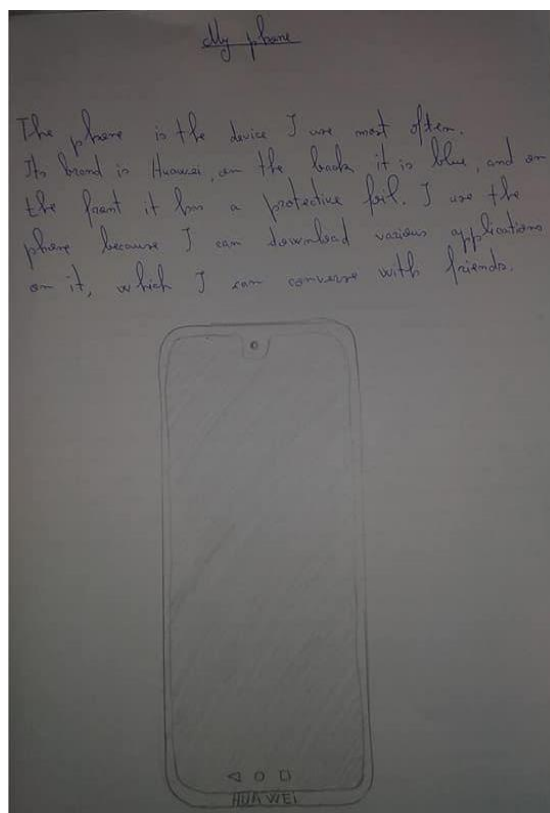 My phone
The phone is the device I use most often.
Its brand is Huawei, on the back it is blue, and on
the front it has a protective foil. I use the
phone because I can download various applications
on it, which I can converse with friends.
HUAWEI